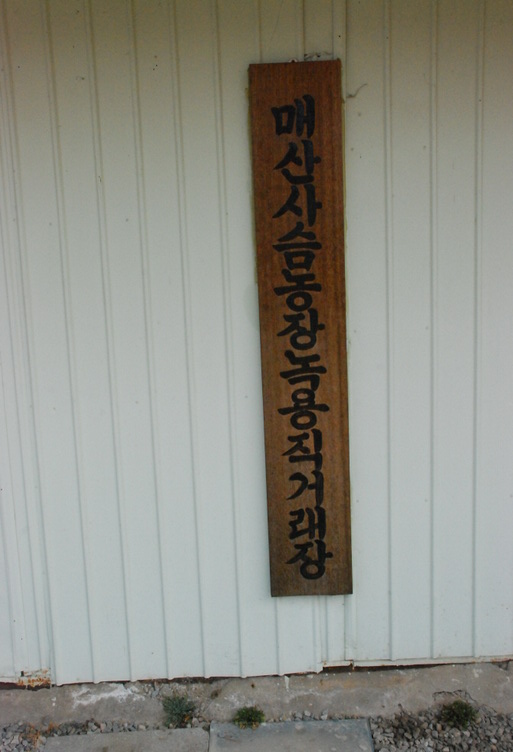 매산사슴농장녹용직거래장